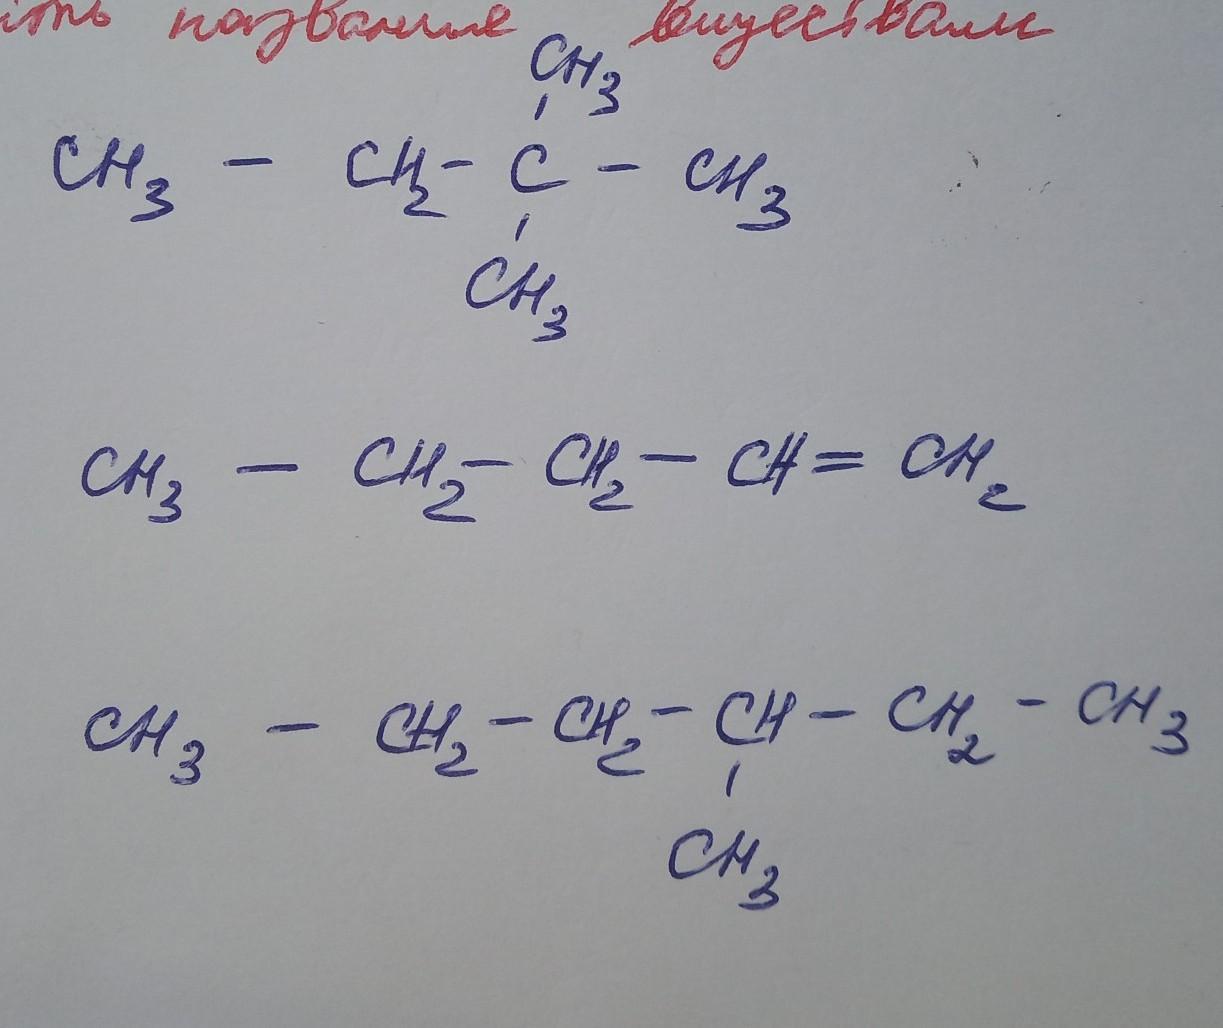 ить название веществам
CH3
CH3 - CH2 - C - CH3
CH3
CH3 - CH2 - CH2 - CH = CH2
CH3 - CH2 - CH2 - CH - CH2 - CH3
CH3